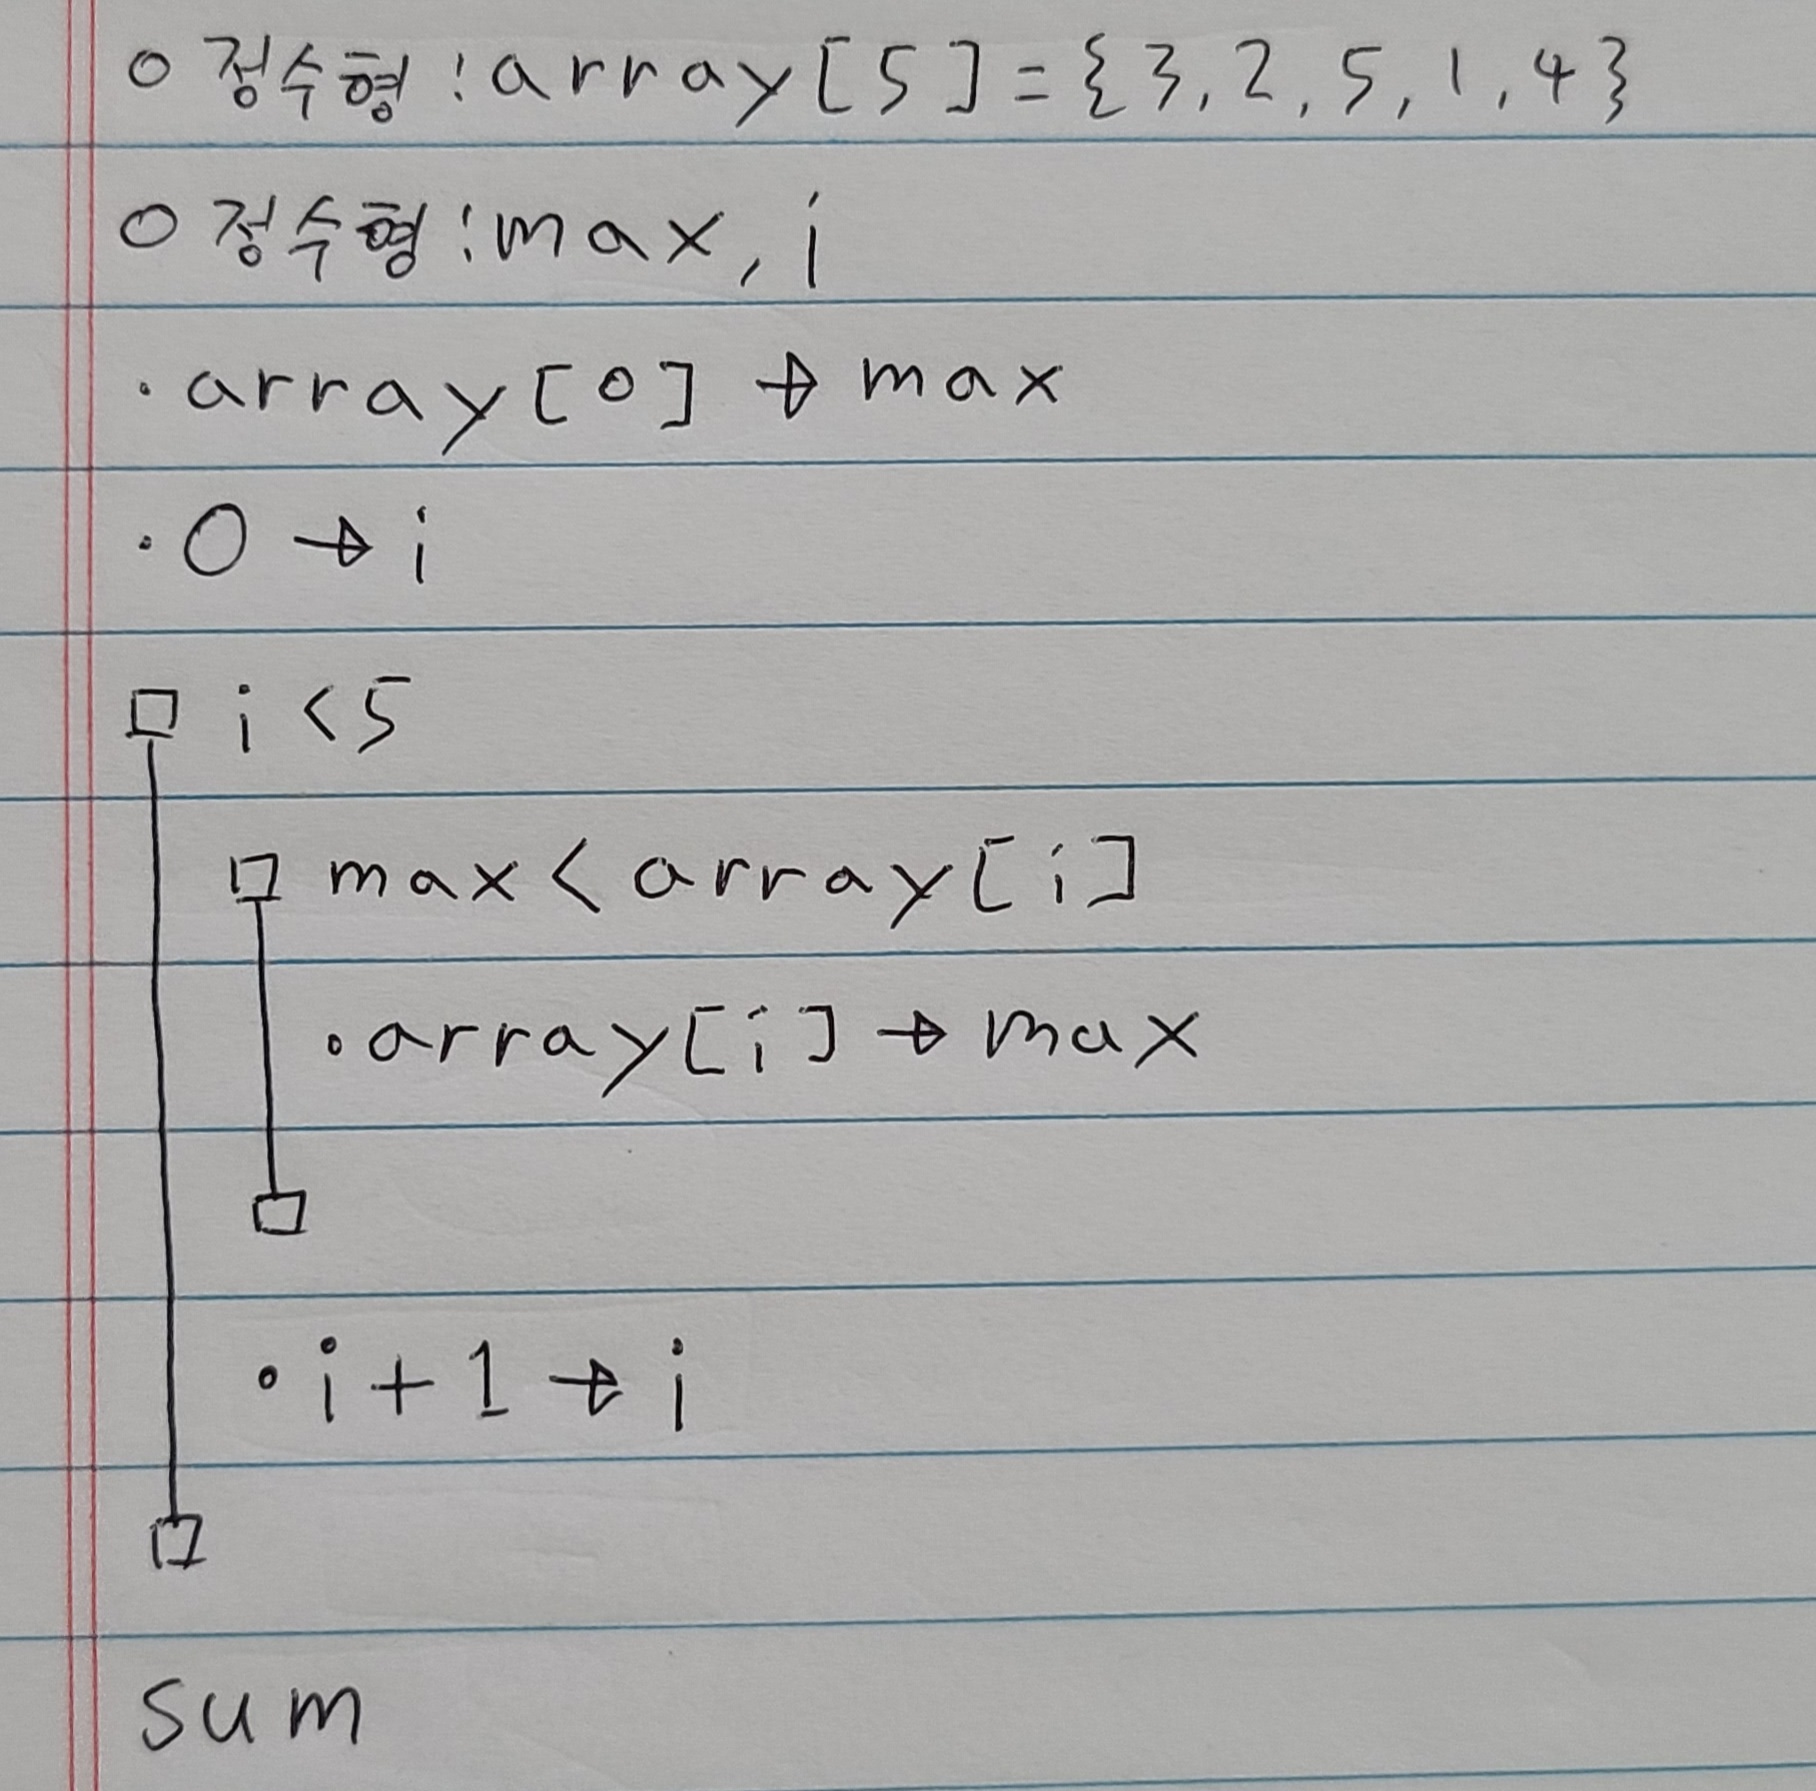 ○ 정수형 : array[5] = {3, 2, 5, 1, 4}
○ 정수형 : max, i
· array[0] → max
· 0 → i
□ i < 5
□ max < array[i]
· array[i] → max
□
· i + 1 → i
□
sum